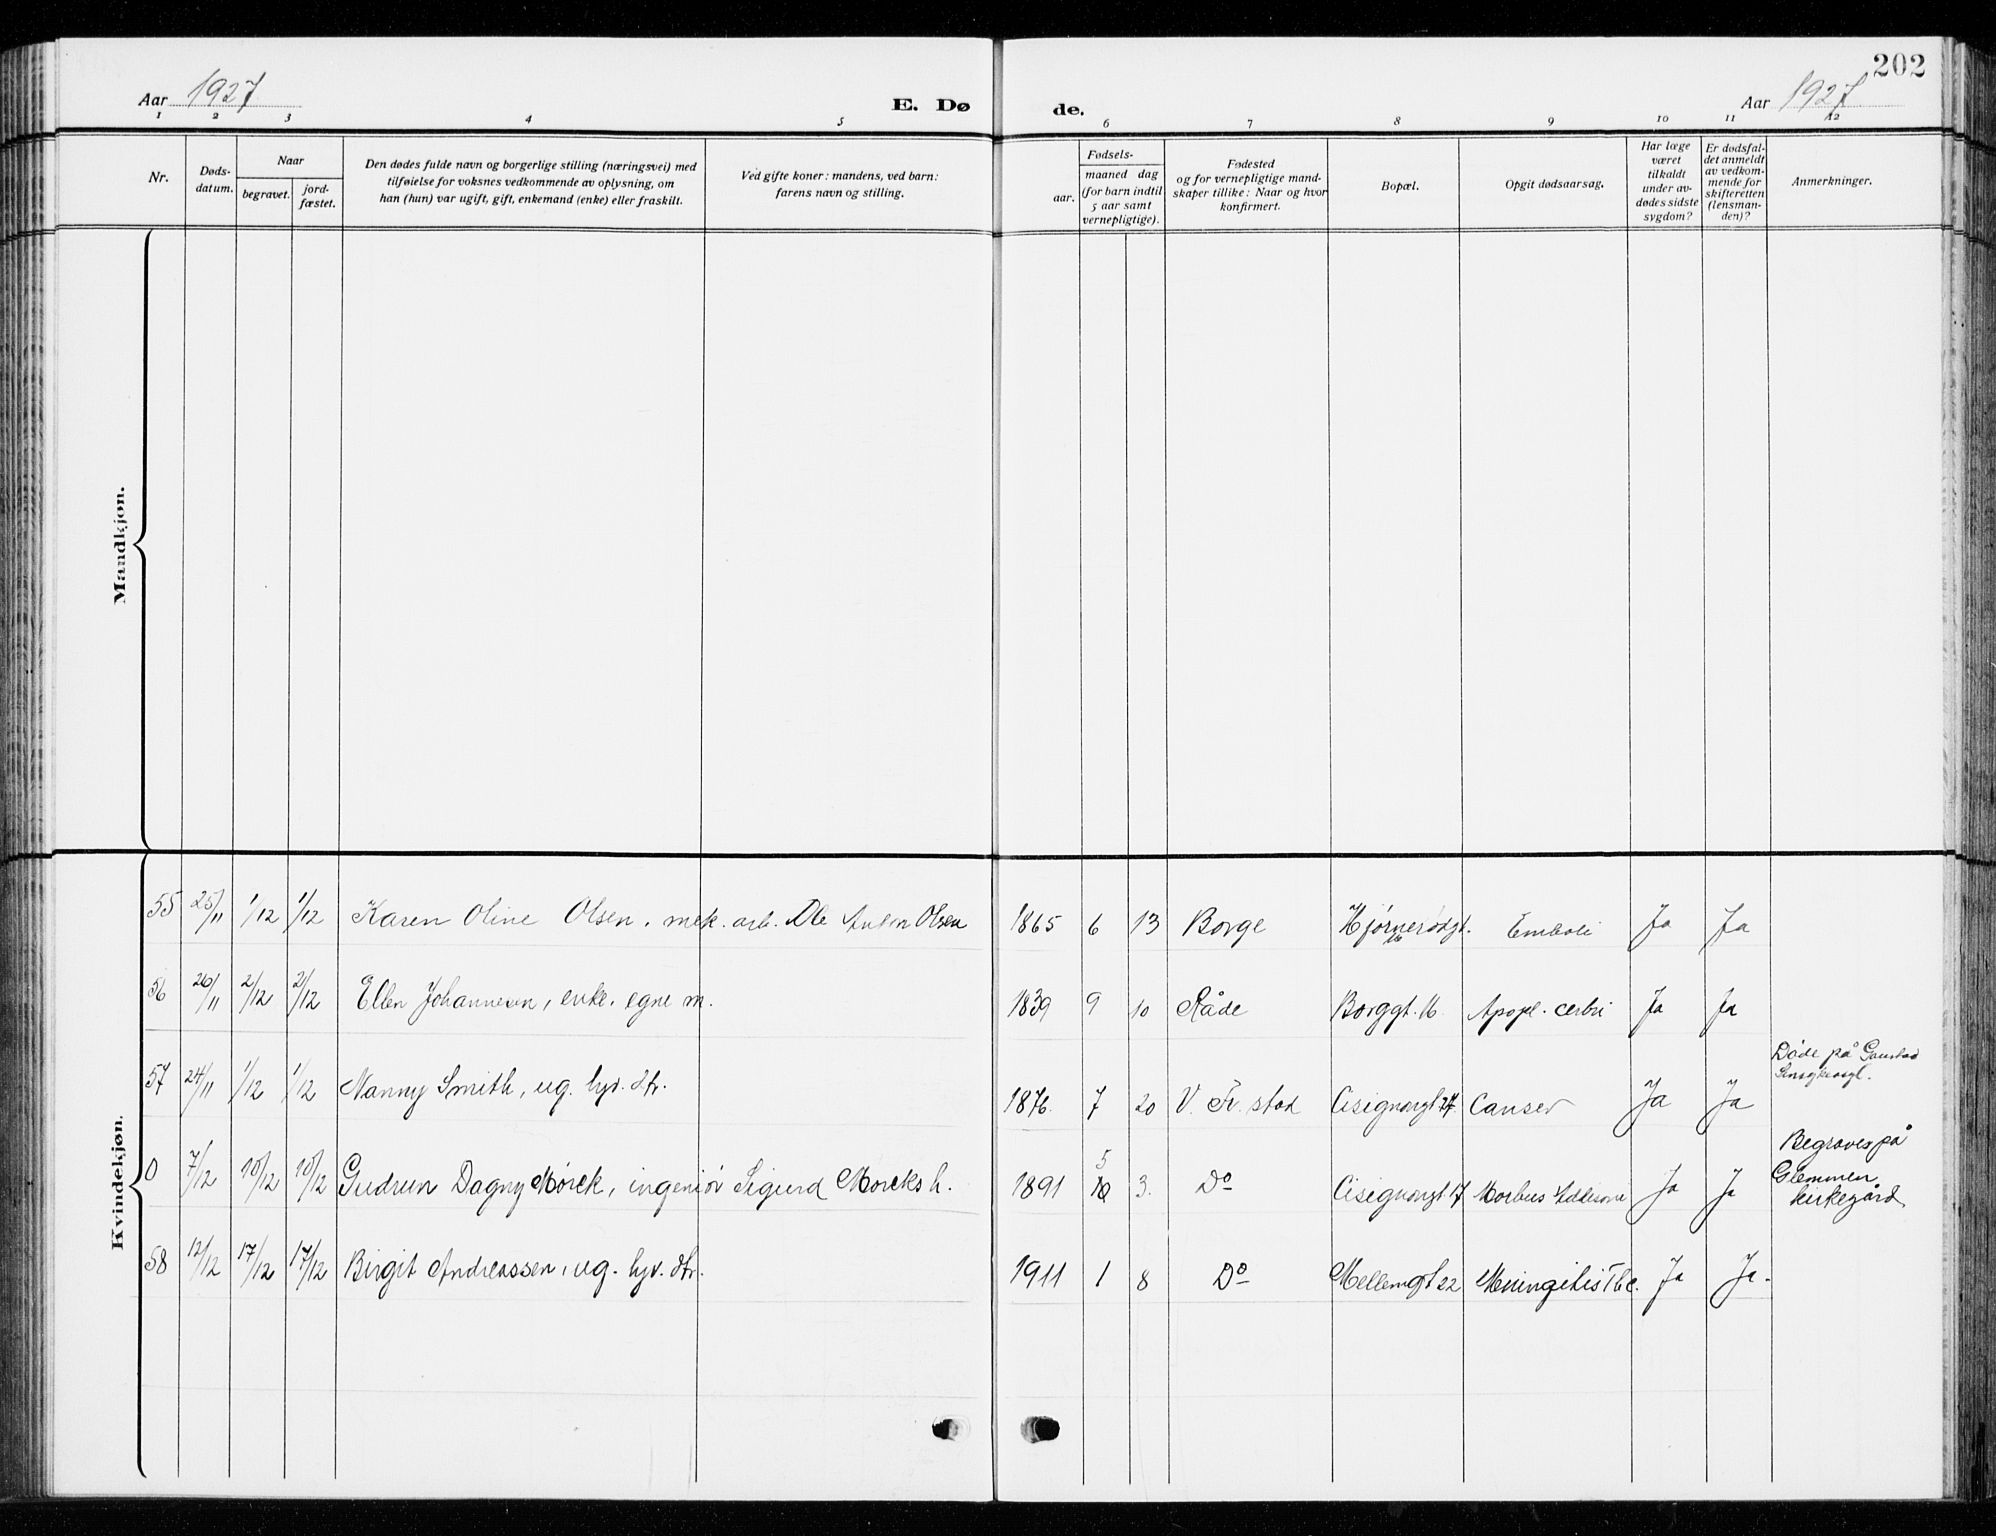 202
Aar 1927 E. Dø de. Aar 1927
1 2 3 4 5 6 7 8 9 10 11 12
Nr.
Døds-
datum.
Naar
begravet.
jord-
fæstet.
Den dødes fulde navn og borgerlige stilling (næringsvei) med
tilføielse for voksnes vedkommende av oplysning, om
han (hun) var ugift, gift, enkemand (enke) eller fraskilt.
Ved gifte koner: mandens, ved barn:
farens navn og stilling.
Fødsels-
aar.
maaned dag
(for barn indtil
5 aar samt
vernepligtige).
Fødested
og for vernepligtige mand-
skaper tillike: Naar og hvor
konfirmert.
Bopæl.
Opgit dødsaarsag.
Har læge
været
tilkaldt
under av-
dødes sidste
sygdom?
Er dødsfal-
det anmeldt
av vedkom-
mende for
skifteretten
(lensman-
den)?
Anmerkninger.
Mandkjøn.
Kvindekjøn.
55 25/11 1/12 1/12 Karen Oline Olsen, mek. arb. Ole Anton Olsen 1865 6 13 Borge Hjørnerødgt. 16 Emboli Ja Ja
56 26/11 2/12 2/12 Ellen Johannesen, enke, egne m. 1839 9 10 Råde Borggt. 16 Apopl. cerbri Ja Ja
57 24/11 1/12 1/12 Nanny Smith, ug. hjv. dtr. 1876. 7 20 V. Fr. stad Cisignongt 24 Canser Ja Ja Døde på Gaustad Sinsykeasyl.
0 7/12 10/12 10/12 Gudrun Dagny Mørck, ingeniør Sigurd Morcks h. 1891 5 3. Do Cisignongt 17 Morbus Addisoni Ja Ja Begraves på
Glemmen
kirkegård
58 12/12 17/12 17/12 Birgit Andreassen, ug. hjv. dtr. 1911 1 8 Do Mellemgt 22 Meningitis Tbc. Ja Ja.